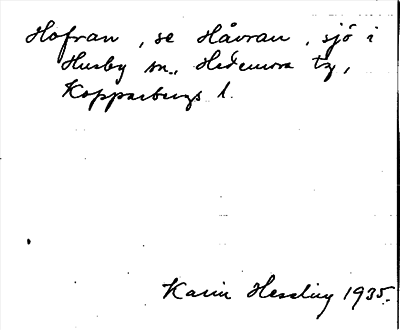 Hofran, se Håvran, sjö i
Husby sn., Hedemora tg,
Kopparbergs l.
Karin Hessling 1935.